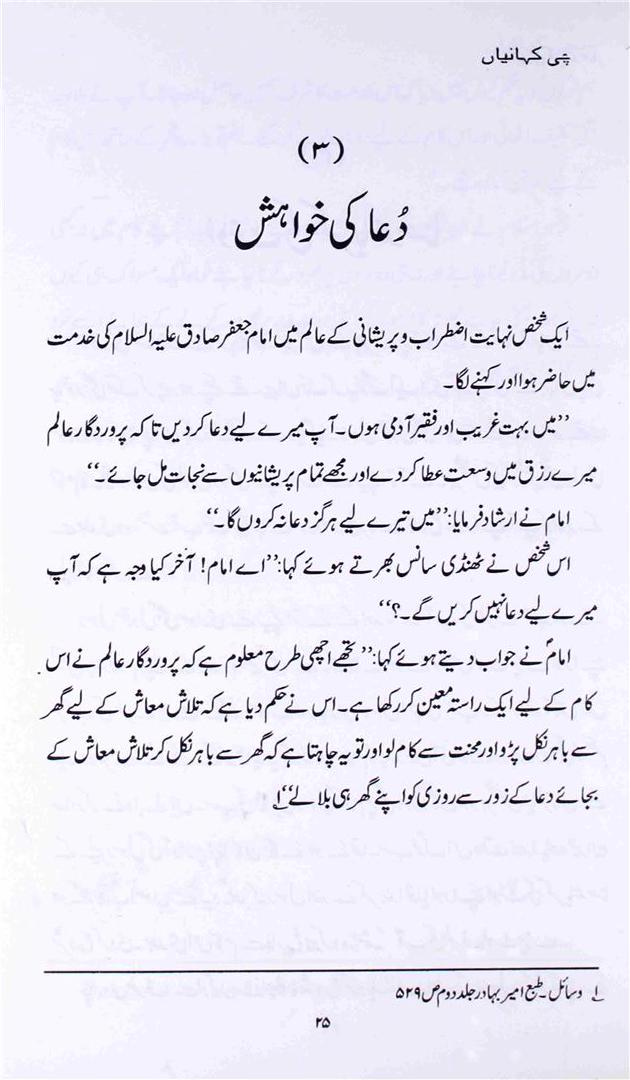 سچی کہانیاں
(۳)
دُعا کی خواہش
ایک شخص نہایت اضطراب و پریشانی کے عالم میں امام جعفر صادق علیہ السلام کی خدمت
میں حاضر ہوا اور کہنے لگا۔
’’میں بہت غریب اور فقیر آدمی ہوں۔ آپ میرے لیے دعا کر دیں تا کہ پروردگار عالم
میرے رزق میں وسعت عطا کر دے اور مجھے تمام پریشانیوں سے نجات مل جائے۔‘‘
امام نے ارشاد فرمایا: ’’میں تیرے لیے ہرگز دعا نہ کروں گا۔‘‘
اس شخص نے ٹھنڈی سانس بھرتے ہوئے کہا: ’’اے امام! آخر کیا وجہ ہے کہ آپ
میرے لیے دعا نہیں کریں گے۔؟‘‘
امامؑ نے جواب دیتے ہوئے کہا: ’’تجھے اچھی طرح معلوم ہے کہ پروردگار عالم نے اس
کام کے لیے ایک راستہ معین کر رکھا ہے۔ اس نے حکم دیا ہے کہ تلاش معاش کے لیے گھر
سے باہر نکل پڑو اور محنت سے کام لو اور تو یہ چاہتا ہے کہ گھر سے باہر نکل کر تلاش معاش کے
بجائے دعا کے زور سے روزی کو اپنے گھر ہی بلا لے‘‘ ۱
۱ وسائل۔ طبع امیر بہادر جلد دوم ص ۵۲۹
۲۵